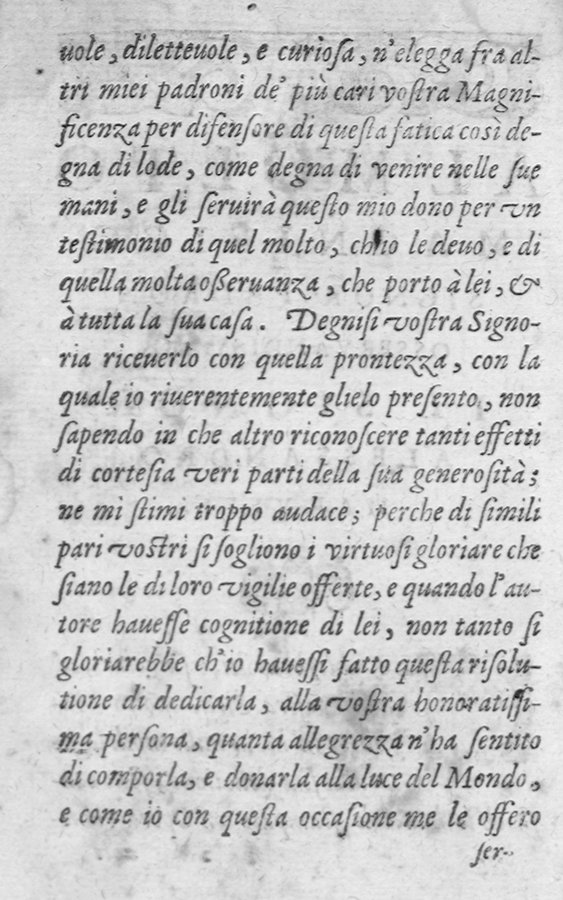 uole, diletteuole, e curiosa, n'elegga fra al-
tri miei padroni de' più cari vostra Magni-
ficenza per difensore di questa fatica così de-
gna di lode, come degna di venire nelle sue
mani, e gli seruirà questo mio dono per vn
testimonio di quel molto, ch'io le deuo, e di
quella molta osseruanza, che porto à lei, &
à tutta la sua casa. Degnisi vostra Signo-
ria riceuerlo con quella prontezza, con la
quale io riuerentemente glielo presento, non
sapendo in che altro riconoscere tanti effetti
di cortesia veri parti della sua generosità;
ne mi stimi troppo audace; perche di simili
pari vostri si sogliono i virtuosi gloriare che
siano le di loro vigilie offerte, e quando l'au-
tore hauesse cognitione di lei, non tanto si
gloriarebbe ch'io hauessi fatto questa risolu-
tione di dedicarla, alla vostra honoratissi-
ma persona, quanta allegrezza n'ha sentito
di comporla, e donarla alla luce del Mondo,
e come io con questa occasione me le offero
ser-